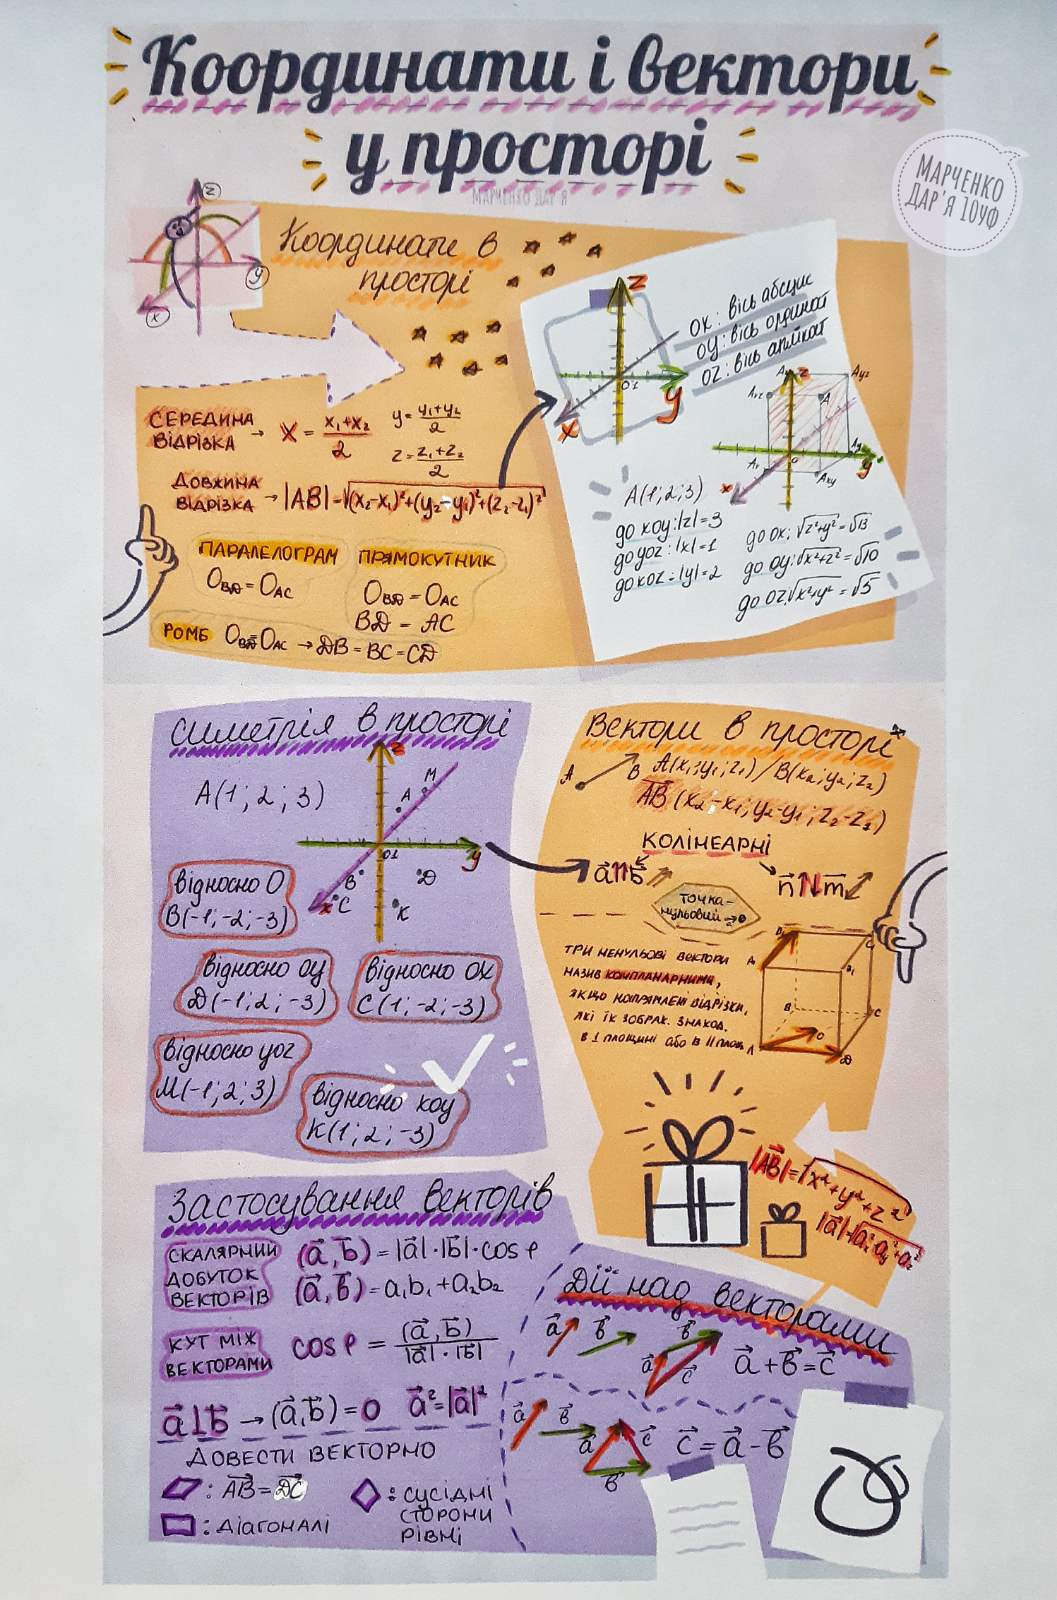 Координати і вектори
у просторі
МАРЧЕНКО ДАР'Я
МАРЧЕНКО
ДАР'Я 10УФ
z
y
x
Координати в
просторі
СЕРЕДИНА
ВІДРІЗКА → x = x₁+x₂/2
y = y₁+y₂/2
z = z₁+z₂/2
ДОВЖИНА
ВІДРІЗКА → |AB|=√(x₂-x₁)²+(y₂-y₁)²+(z₂-z₁)²
ПАРАЛЕЛОГРАМ
O_BD = O_AC
ПРЯМОКУТНИК
O_BD = O_AC
BD = AC
РОМБ O_BD = O_AC → DB = BC = CD
z
01
y
x
ox: вісь абсцис
oy: вісь ординат
oz: вісь аплікат
z
Ayz
Axz
A
Ay
y
0
Ax
Axy
x
A(1;2;3)
до xoy: |z|=3
до yoz: |x|=1
до xoz = |y|=2
до ox: √z²+y² = √13
до oy: √x²+z² = √10
до oz: √x²+y² = √5
Симетрія в просторі
A(1;2;3)
z
M
A
01
y
B
D
x
C
K
відносно O
B(-1;-2;-3)
відносно oy
D(-1;2;-3)
відносно ox
C(1;-2;-3)
відносно yoz
M(-1;2;3)
відносно xoy
K(1;2;-3)
Вектори в просторі
A
B
A(x₁;y₁;z₁) / B(x₂;y₂;z₂)
AB (x₂-x₁;y₂-y₁;z₂-z₁)
КОЛІНЕАРНІ
a⃗↑↑b⃗
n⃗↑↓m⃗
точка-
нульовий →
ТРИ НЕНУЛЬОВІ ВЕКТОРИ
НАЗИВ КОМПЛАНАРНИМИ,
ЯКЩО НАПРЯМЛЕНІ ВІДРІЗКИ,
ЯКІ ЇХ ЗОБРАЖ. ЗНАХОД.
В 1 ПЛОЩИНІ АБО В || ПЛОЩ
|AB|=√x²+y²+z²
Застосування векторів
СКАЛЯРНИЙ
ДОБУТОК
ВЕКТОРІВ
(a⃗,b⃗) = |a⃗|·|b⃗|·cos φ
(a⃗,b⃗) = a₁b₁+a₂b₂
КУТ МІЖ
ВЕКТОРАМИ
cos φ = (a⃗,b⃗)/|a⃗|·|b⃗|
a⃗⊥b⃗ → (a⃗,b⃗) = 0 a⃗²=|a⃗|²
ДОВЕСТИ ВЕКТОРНО
: AB⃗ = DC⃗
: ДІАГОНАЛІ
: СУСІДНІ
СТОРОНИ
РІВНІ
Дії над векторами
a⃗ b⃗
b⃗
a⃗ c⃗
a⃗+b⃗=c⃗
a⃗ b⃗
a⃗ c⃗
b⃗
c⃗=a⃗-b⃗